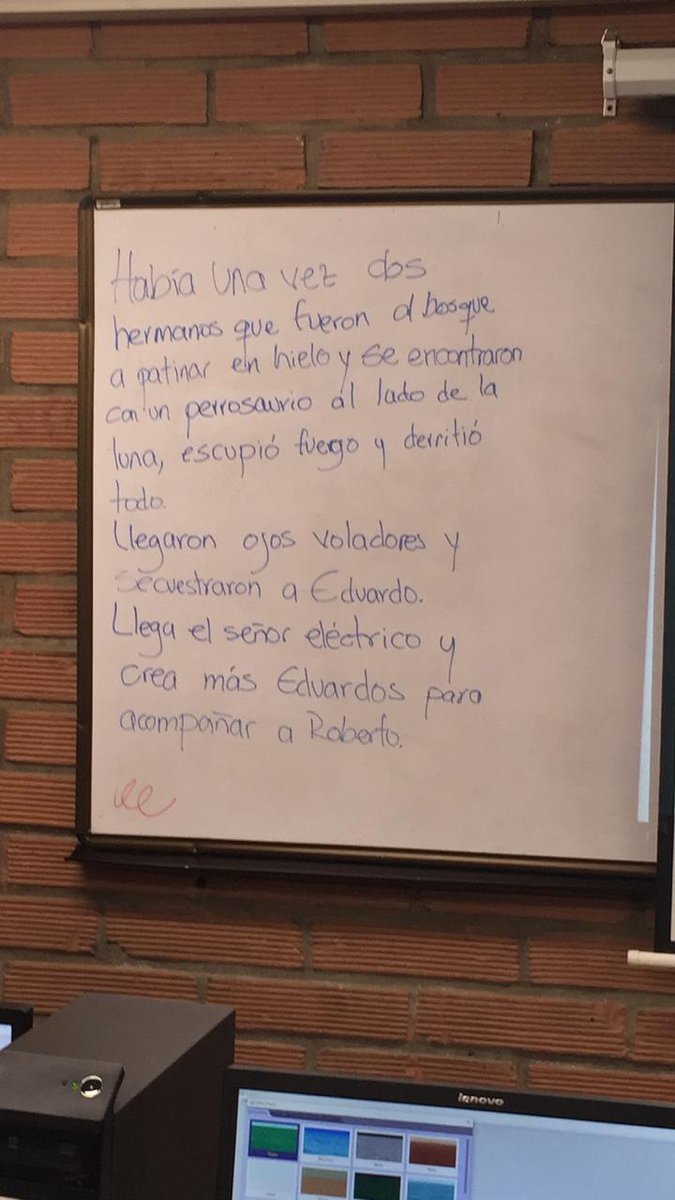 Había una vez dos
hermanos que fueron al bosque.
a patinar en hielo y se encontraron
con un perrosaurio al lado de la
luna, escupió fuego y derritió
todo.
Llegaron ojos voladores y
secuestraron a Eduardo.
Llega el señor eléctrico y
crea más Eduardos para
acompañar a Roberto.
lenovo